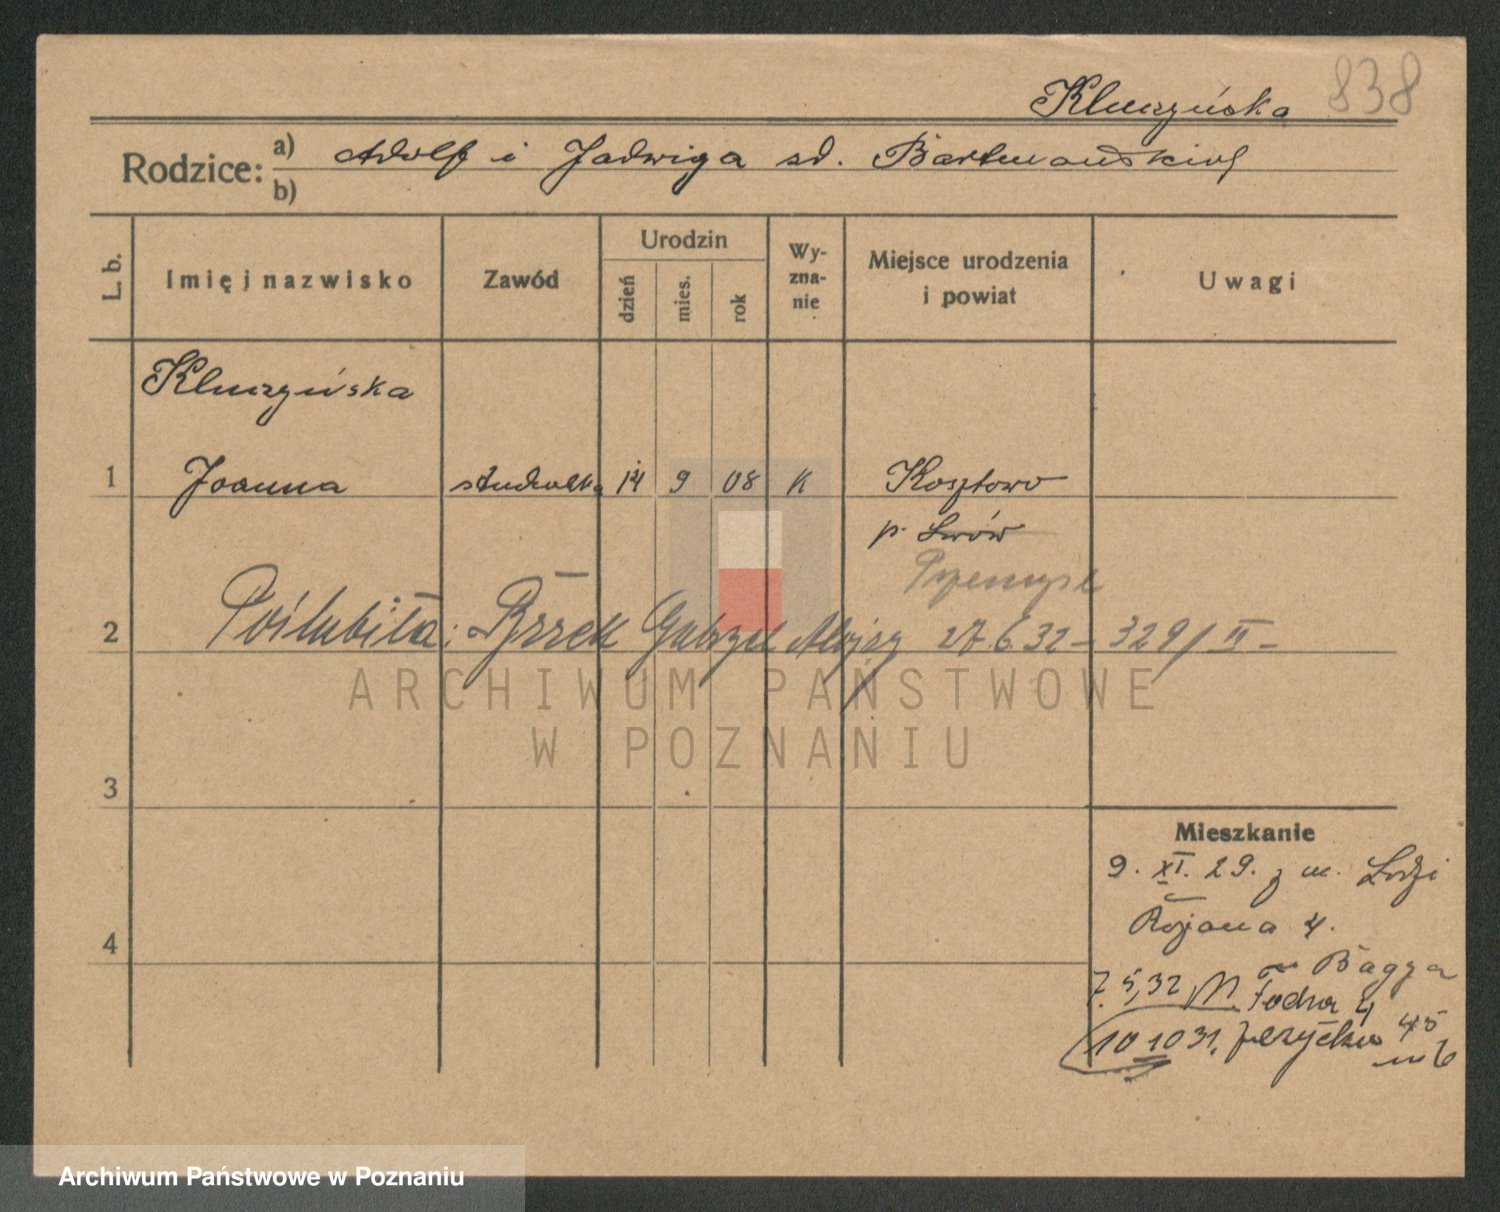 838
Kluczyńska
Rodzice: a) Adolf i Jadwiga zd. Bartmańskich
b)
L. b. Imię i nazwisko Zawód Urodzin dzień mies. rok Wy-zna-nie Miejsce urodzenia i powiat Uwagi
Kluczyńska
1 Joanna studentka 14 9 08 K Kosztowo
p. Lwów
Przemyśl
2 Poślubiła: Gabryel Alojzy 27 6 32 – 329/III –
ARCHIWUM PAŃSTWOWE
W POZNANIU
3
Mieszkanie
9. XI. 29. z m. Łodzi
4
7. 5. 32 Focha 4
10 10 31. 45
m 6
Archiwum Państwowe w Poznaniu